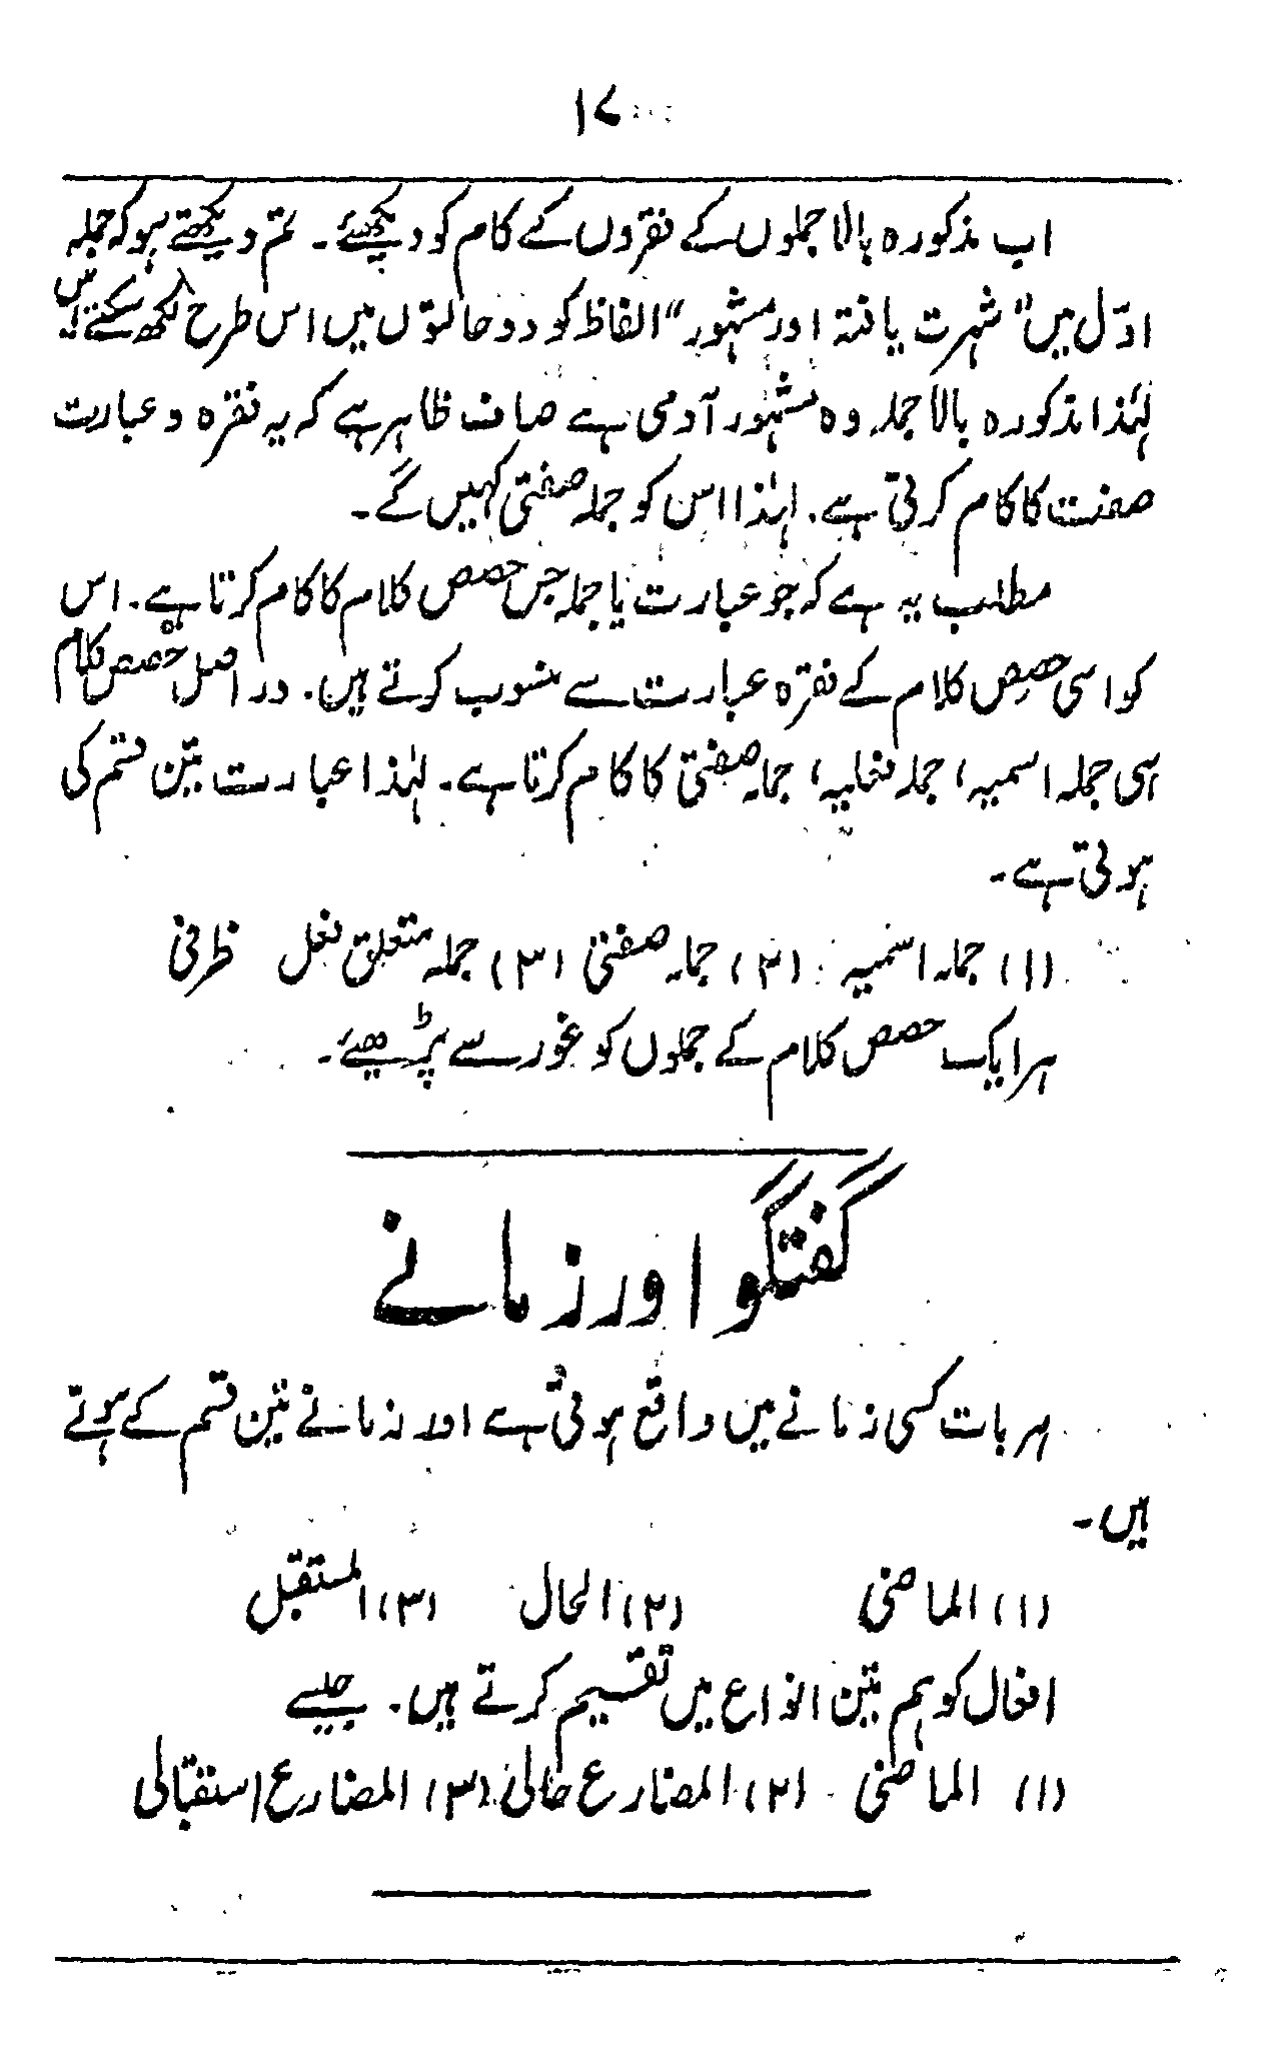 ۱۷
اب مذکورہ بالا جملوں کے فقروں کے کام کو دیکھئے۔ تم دیکھتے ہو کہ جملہ
اوّل میں "شہرت یافتہ اور مشہور" الفاظ کو دو حالتوں میں اس طرح لکھ سکتے ہیں
لہٰذا مذکورہ بالا جملہ وہ مشہور آدمی ہے صاف ظاہر ہے کہ یہ فقرہ و عبارت
صفت کا کام کرتی ہے۔ لہٰذا اس کو جملہ صفتی کہیں گے۔
مطلب یہ ہے کہ جو عبارت یا جملہ جس حصص کلام کا کام کرتا ہے۔ اس
کو اسی حصص کلام کے فقرہ عبارت سے منسوب کرتے ہیں۔ در اصل حصص کلام
ہی جملہ اسمیہ، جملہ فعلیہ، جملہ صفتی کا کام کرتا ہے۔ لہٰذا عبارت تین قسم کی
ہوتی ہے۔
(۱) جملہ اسمیہ (۲) جملہ صفتی (۳) جملہ متعلق فعل ظرفی
ہر ایک حصص کلام کے جملوں کو غور سے پڑھیئے۔
گفتگو اور زمانے
ہر بات کسی زمانے میں واقع ہوتی ہے اور زمانے تین قسم کے ہوتے
ہیں۔
(۱) الماضی (۲) الحال (۳) المستقبل
افعال کو ہم تین انواع میں تقسیم کرتے ہیں۔ جیسے
(۱) الماضی (۲) المضارع حالی (۳) المضارع استقبالی